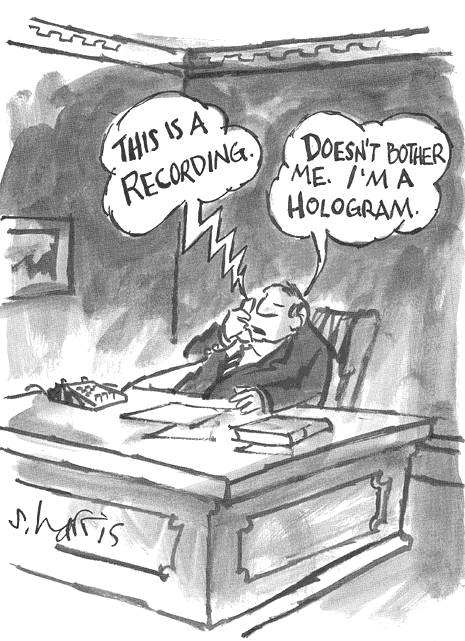 THIS IS A
RECORDING.
DOESN'T BOTHER
ME. I'M A
HOLOGRAM.
s. harris